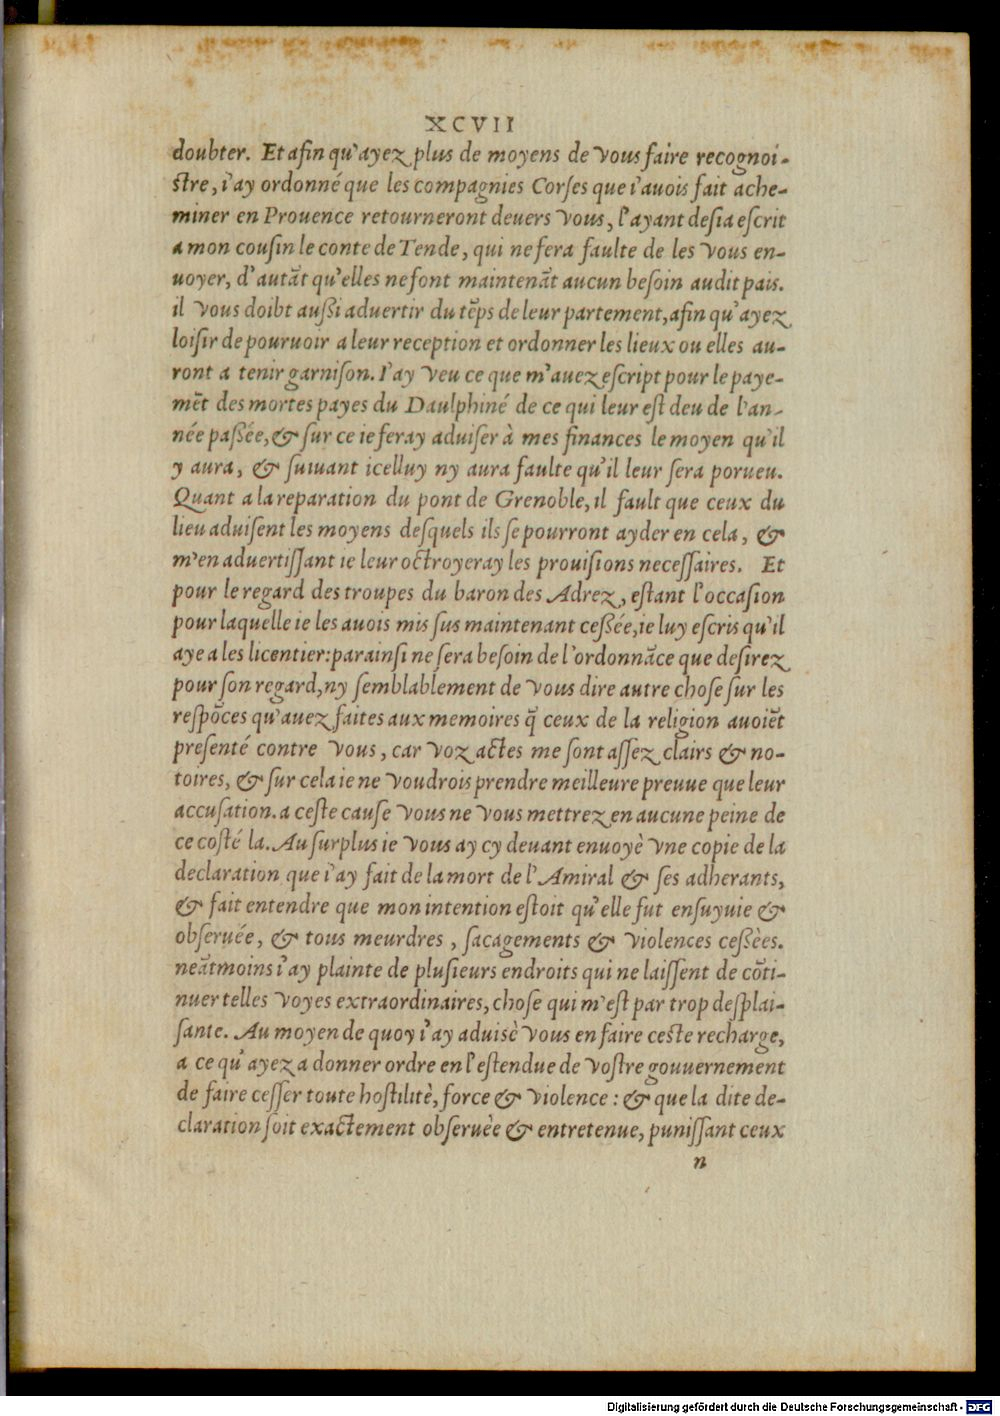 XCVII
doubter. Et afin qu'ayez plus de moyens de vous faire recognoi-
stre, i'ay ordonné que les compagnies Corses que i'auois fait ache-
miner en Prouence retourneront deuers vous, l'ayant desia escrit
a mon cousin le conte de Tende, qui ne fera faulte de les vous en-
uoyer, d'autãt qu'elles ne font maintenãt aucun besoin audit pais.
il vous doibt aussi aduertir du tẽps de leur partement, afin qu'ayez
loisir de pouruoir a leur reception et ordonner les lieux ou elles au-
ront a tenir garnison. I'ay veu ce que m'auez escript pour le paye-
mẽt des mortes payes du Daulphiné de ce qui leur est deu de l'an-
née passée, & sur ce ie feray aduiser à mes finances le moyen qu'il
y aura, & suiuant icelluy ny aura faulte qu'il leur sera porueu.
Quant a la reparation du pont de Grenoble, il fault que ceux du
lieu aduisent les moyens desquels ils se pourront ayder en cela, &
m'en aduertissant ie leur octroyeray les prouisions necessaires. Et
pour le regard des troupes du baron des Adrez, estant l'occasion
pour laquelle ie les auois mis sus maintenant cessée, ie luy escris qu'il
aye a les licentier: parainsi ne sera besoin de l'ordonnãce que desirez
pour son regard, ny semblablement de vous dire autre chose sur les
respõces qu'auez faites aux memoires q̃ ceux de la religion auoiẽt
presenté contre vous, car voz actes me sont assez clairs & no-
toires, & sur cela ie ne voudrois prendre meilleure preuue que leur
accusation. a ceste cause vous ne vous mettrez en aucune peine de
ce costé la. Au surplus ie vous ay cy deuant enuoyè vne copie de la
declaration que i'ay fait de la mort de l'Amiral & ses adherants,
& fait entendre que mon intention estoit qu'elle fut ensuyuie &
obseruée, & tous meurdres, sacagements & violences cessèes.
neãtmoins i'ay plainte de plusieurs endroits qui ne laissent de cõti-
nuer telles voyes extraordinaires, chose qui m'est par trop desplai-
sante. Au moyen de quoy i'ay aduisè vous en faire ceste recharge,
a ce qu'ayez a donner ordre en l'estendue de vostre gouuernement
de faire cesser toute hostilitè, force & violence : & que la dite de-
claration soit exactement obseruèe & entretenue, punissant ceux
n
Digitalisierung gefördert durch die Deutsche Forschungsgemeinschaft - DFG